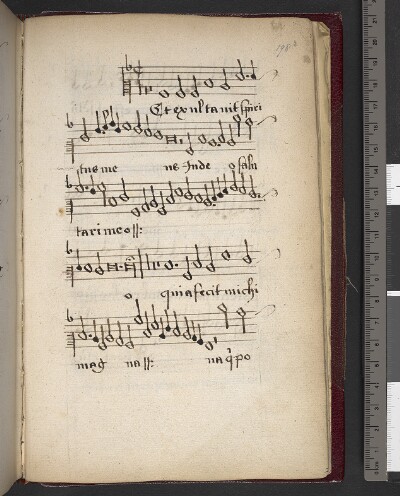 Et exultauit spiri
itus me us Inde o salu
tari meo ||:
o quia fecit michi
mag na ||: na q̇ po